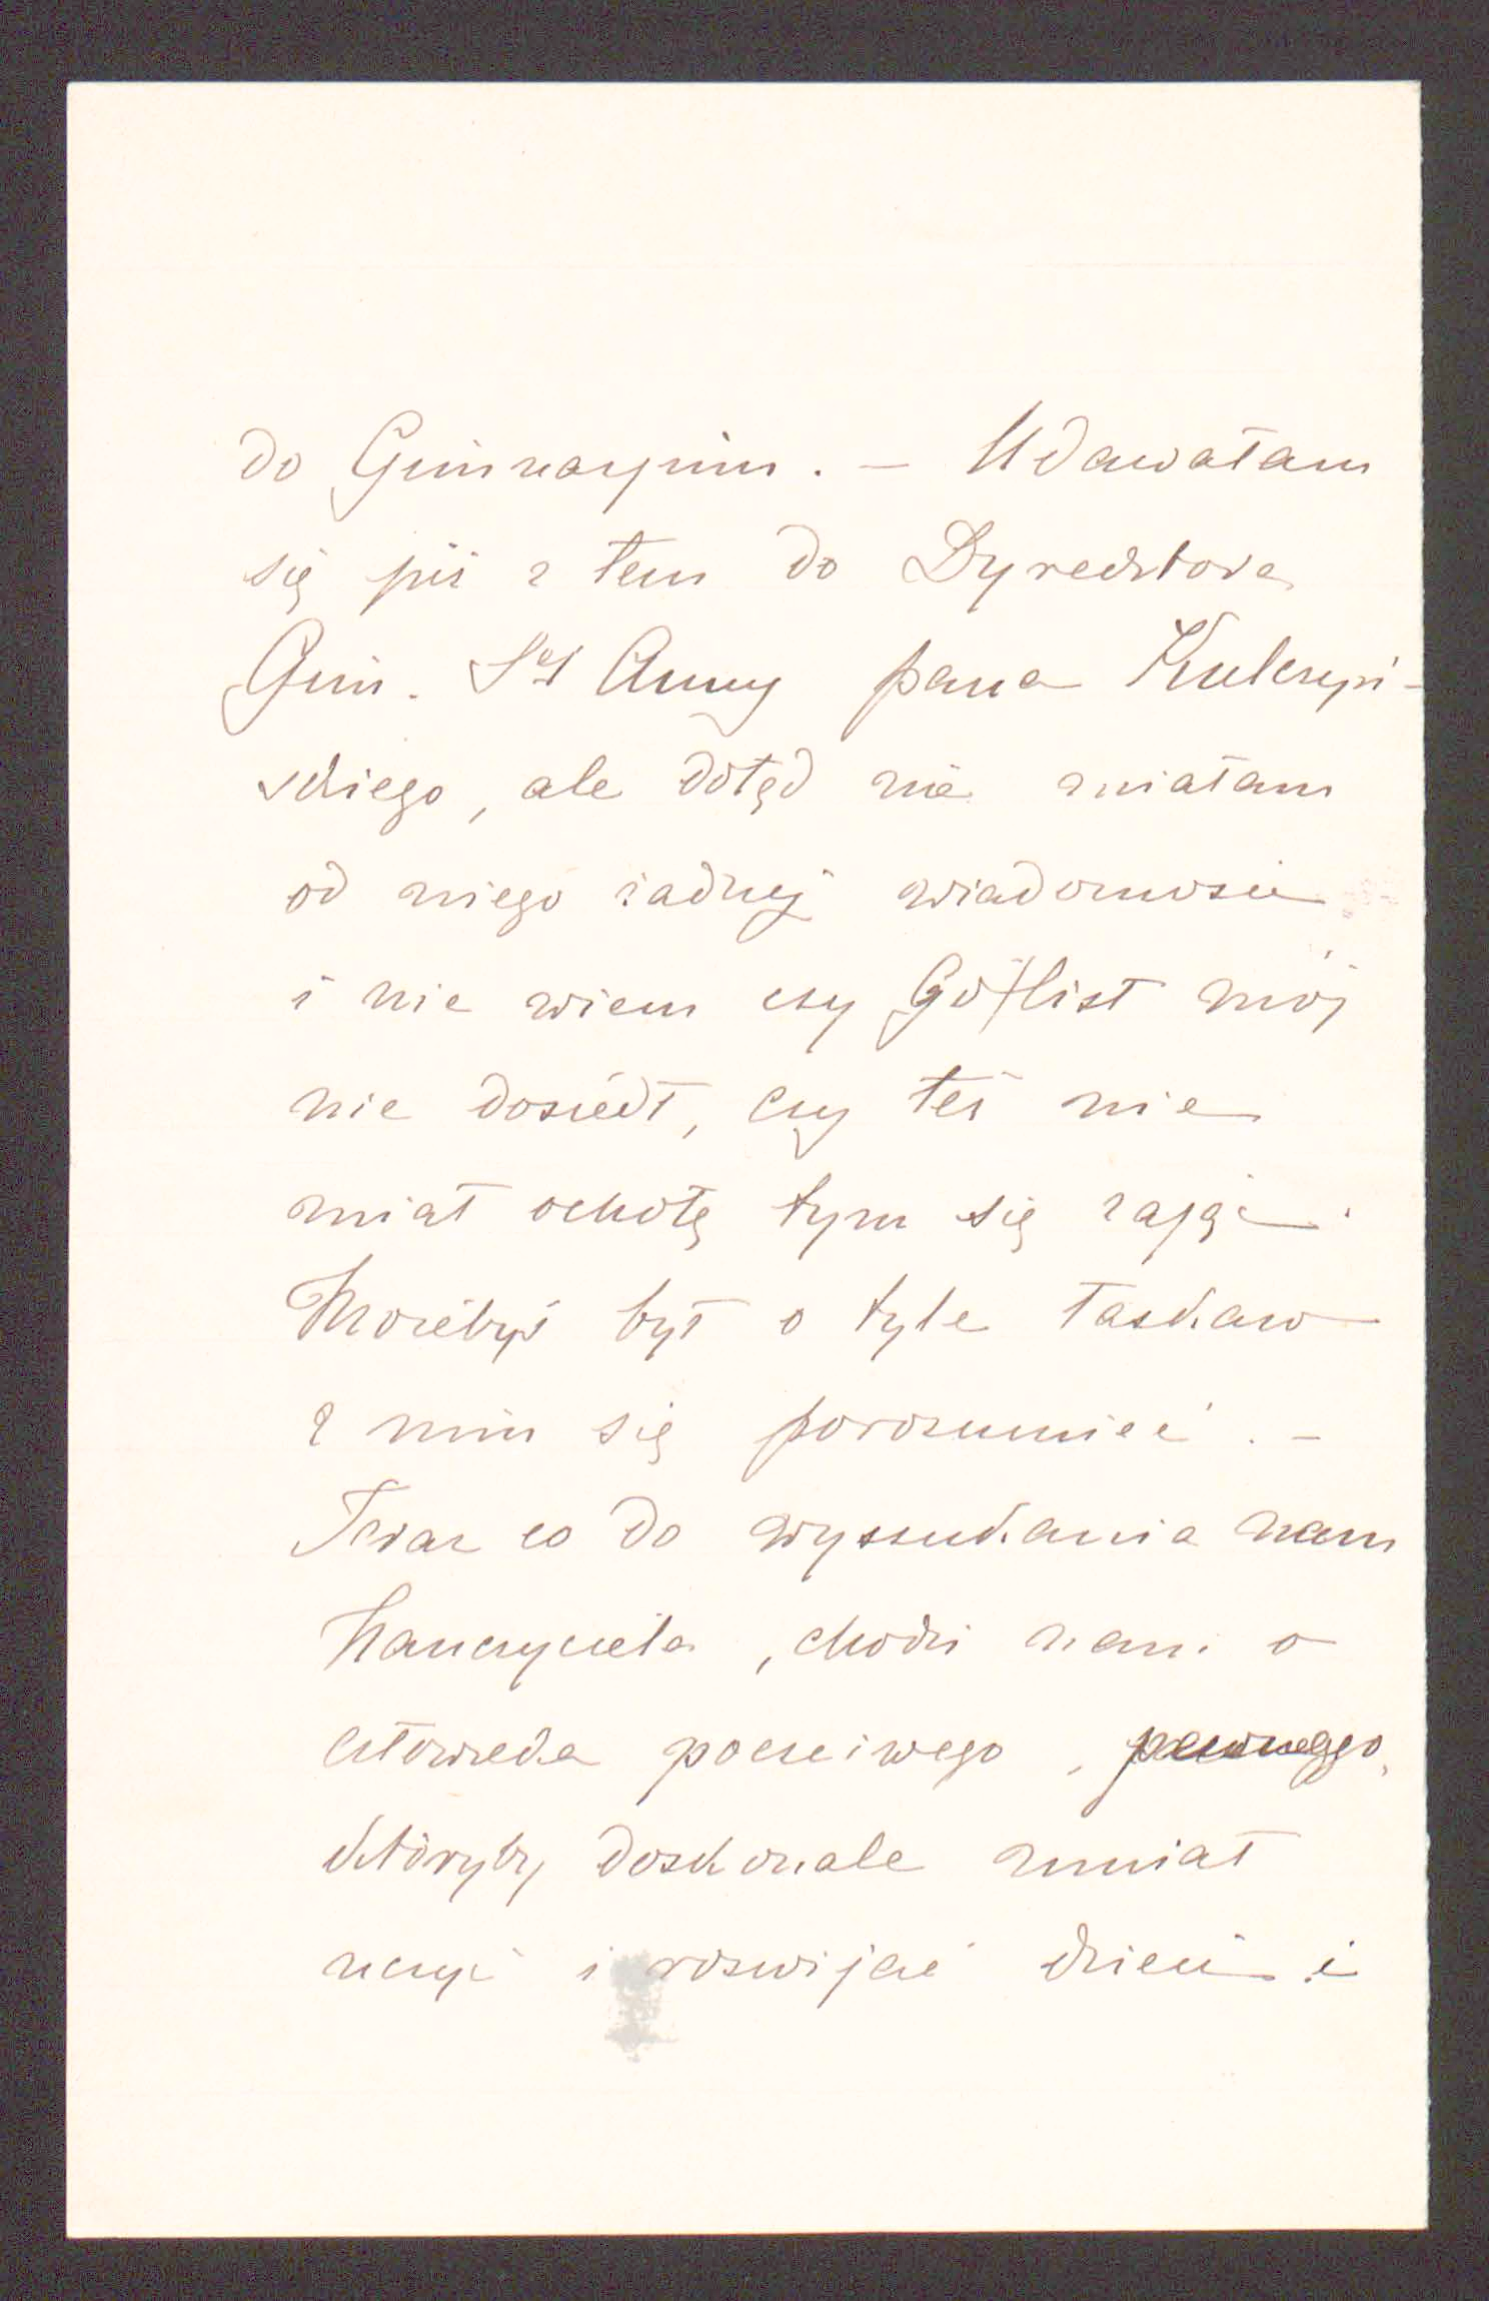 do Gimnazyum. — Udawałam
się już z tem do Dyrektora
Gim. Sej Anny pana Kulczyń-
skiego, ale dotąd nie miałam
od niego żadnej wiadomości
i nie wiem czy Go list mój
nie doszedł, czy też nie
miał ochotę tym się zająć.
Możebyś był o tyle łaskaw
z nim się porozumieć. —
Teraz co do wyszukania nam
Nauczyciela, chodzi nam o
człowieka poczciwego, pewnego,
któryby doskonale umiał
uczyć i rozwijać dzieci i